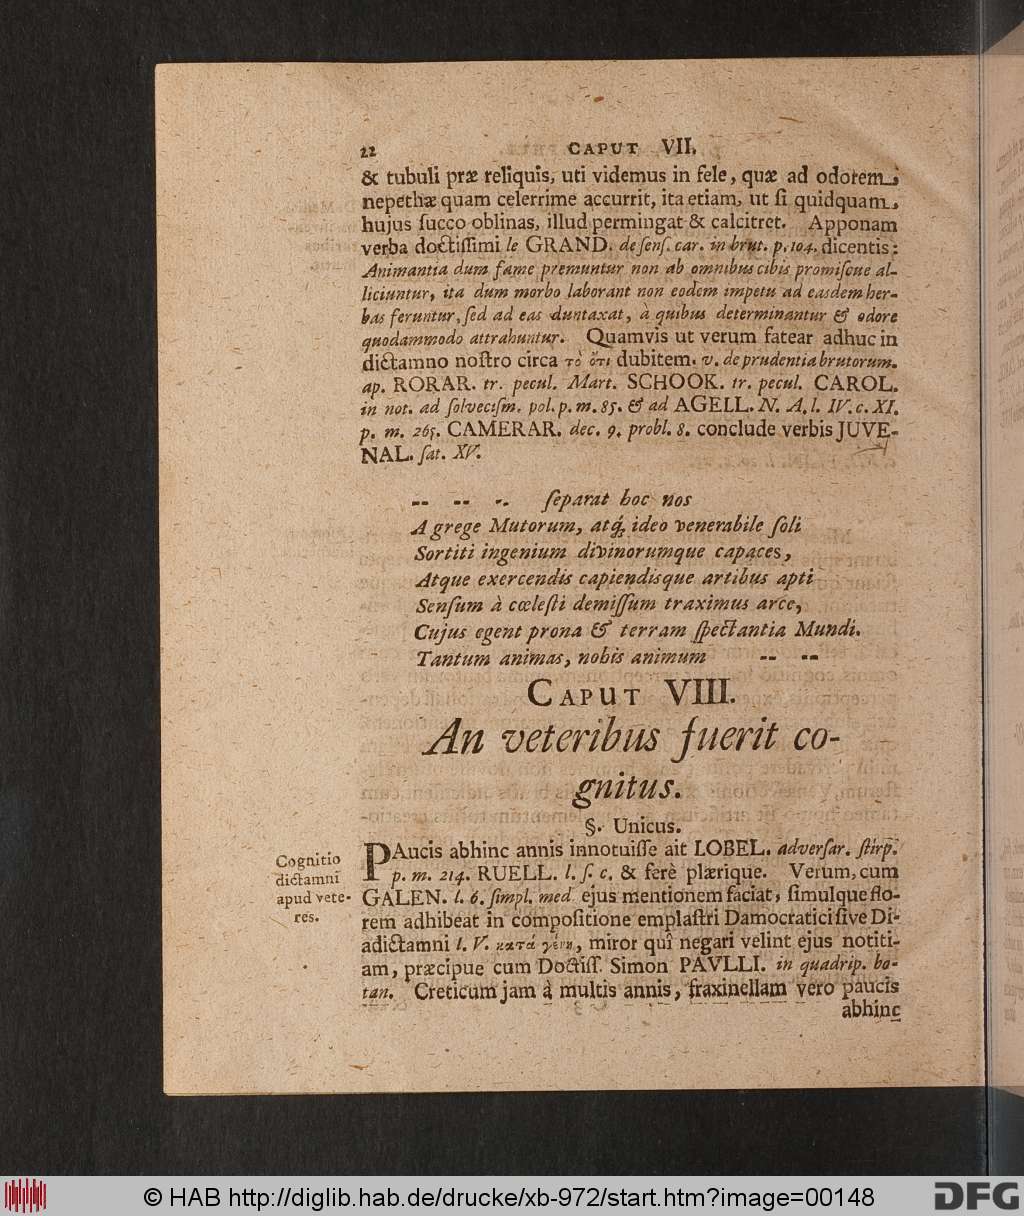 22 CAPUT VII.
& tubuli præ reliquis, uti videmus in fele, quæ ad odorem,
nepethæ quam celerrime accurrit, ita etiam, ut si quidquam,
hujus ſucco oblinas, illud permingat & calcitret. Apponam
verba doctiſſimi le GRAND. de ſenſ. car. in brut. p. 104. dicentis:
Animantia dum fame premuntur non ab omnibus cibis promiſcue al-
liciuntur, ita dum morbo laborant non eodem impetu ad easdem her-
bas feruntur, ſed ad eas duntaxat, à quibus determinantur & odore
quodammodo attrahuntur. Quamvis ut verum fatear adhuc in
dictamno noſtro circa τὸ ὅτι dubitem. v. de prudentia brutorum.
ap. RORAR. tr. pecul. Mart. SCHOOK. tr. pecul. CAROL.
in not. ad ſolveciſm. pol. p. m. 85. & ad AGELL. N. A. l. IV. c. XI.
p. m. 265. CAMERAR. dec. 9. probl. 8. conclude verbis JUVE-
NAL. ſat. XV.
-- -- -. ſeparat hoc nos
A grege Mutorum, atq́; ideo venerabile ſoli
Sortiti ingenium divinorumque capaces,
Atque exercendis capiendisque artibus apti
Senſum à cœleſti demiſſum traximus arce,
Cujus egent prona & terram ſpectantia Mundi.
Tantum animas, nobis animum -- --
CAPUT VIII.
An veteribus fuerit co-
gnitus.
§. Unicus.
Cognitio
dictamni
apud vete-
res.
PAucis abhinc annis innotuiſſe ait LOBEL. adverſar. ſtirp.
p. m. 214. RUELL. l. ſ. c. & ferè plærique. Verum, cum
GALEN. l. 6. ſimpl. med ejus mentionem faciat, ſimulque flo-
rem adhibeat in compoſitione emplaſtri Damocratici ſive Di-
adictamni l. V. κατά γένη, miror quî negari velint ejus notiti-
am, præcipue cum Doctiſſ. Simon PAVLLI. in quadrip. bo-
tan. Creticum jam à multis annis, fraxinellam vero paucis
abhinc
© HAB http://diglib.hab.de/drucke/xb-972/start.htm?image=00148
DFG